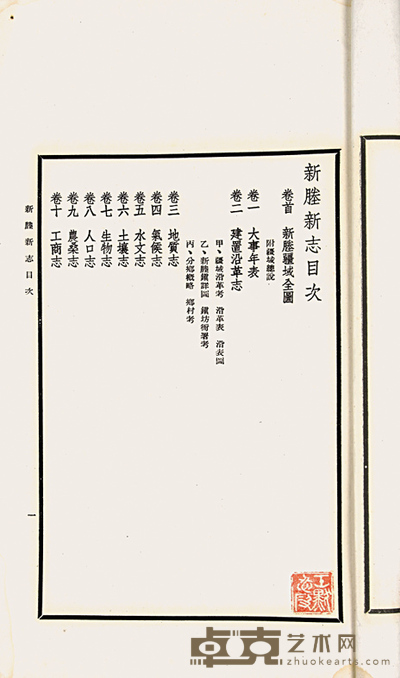 新塍新志目次
卷首　新塍疆域全圖
附疆域總說
卷一　大事年表
卷二　建置沿革志
甲、疆域沿革考　沿革表　沿表圖
乙、新塍鎮詳圖　鎮坊衙署考
丙、分鄉概略　鄉村考
卷三　地質志
卷四　氣候志
卷五　水文志
卷六　土壤志
卷七　生物志
卷八　人口志
卷九　農桑志
卷十　工商志
新塍新志目次
一
卓克艺术网
zhuokearts.com